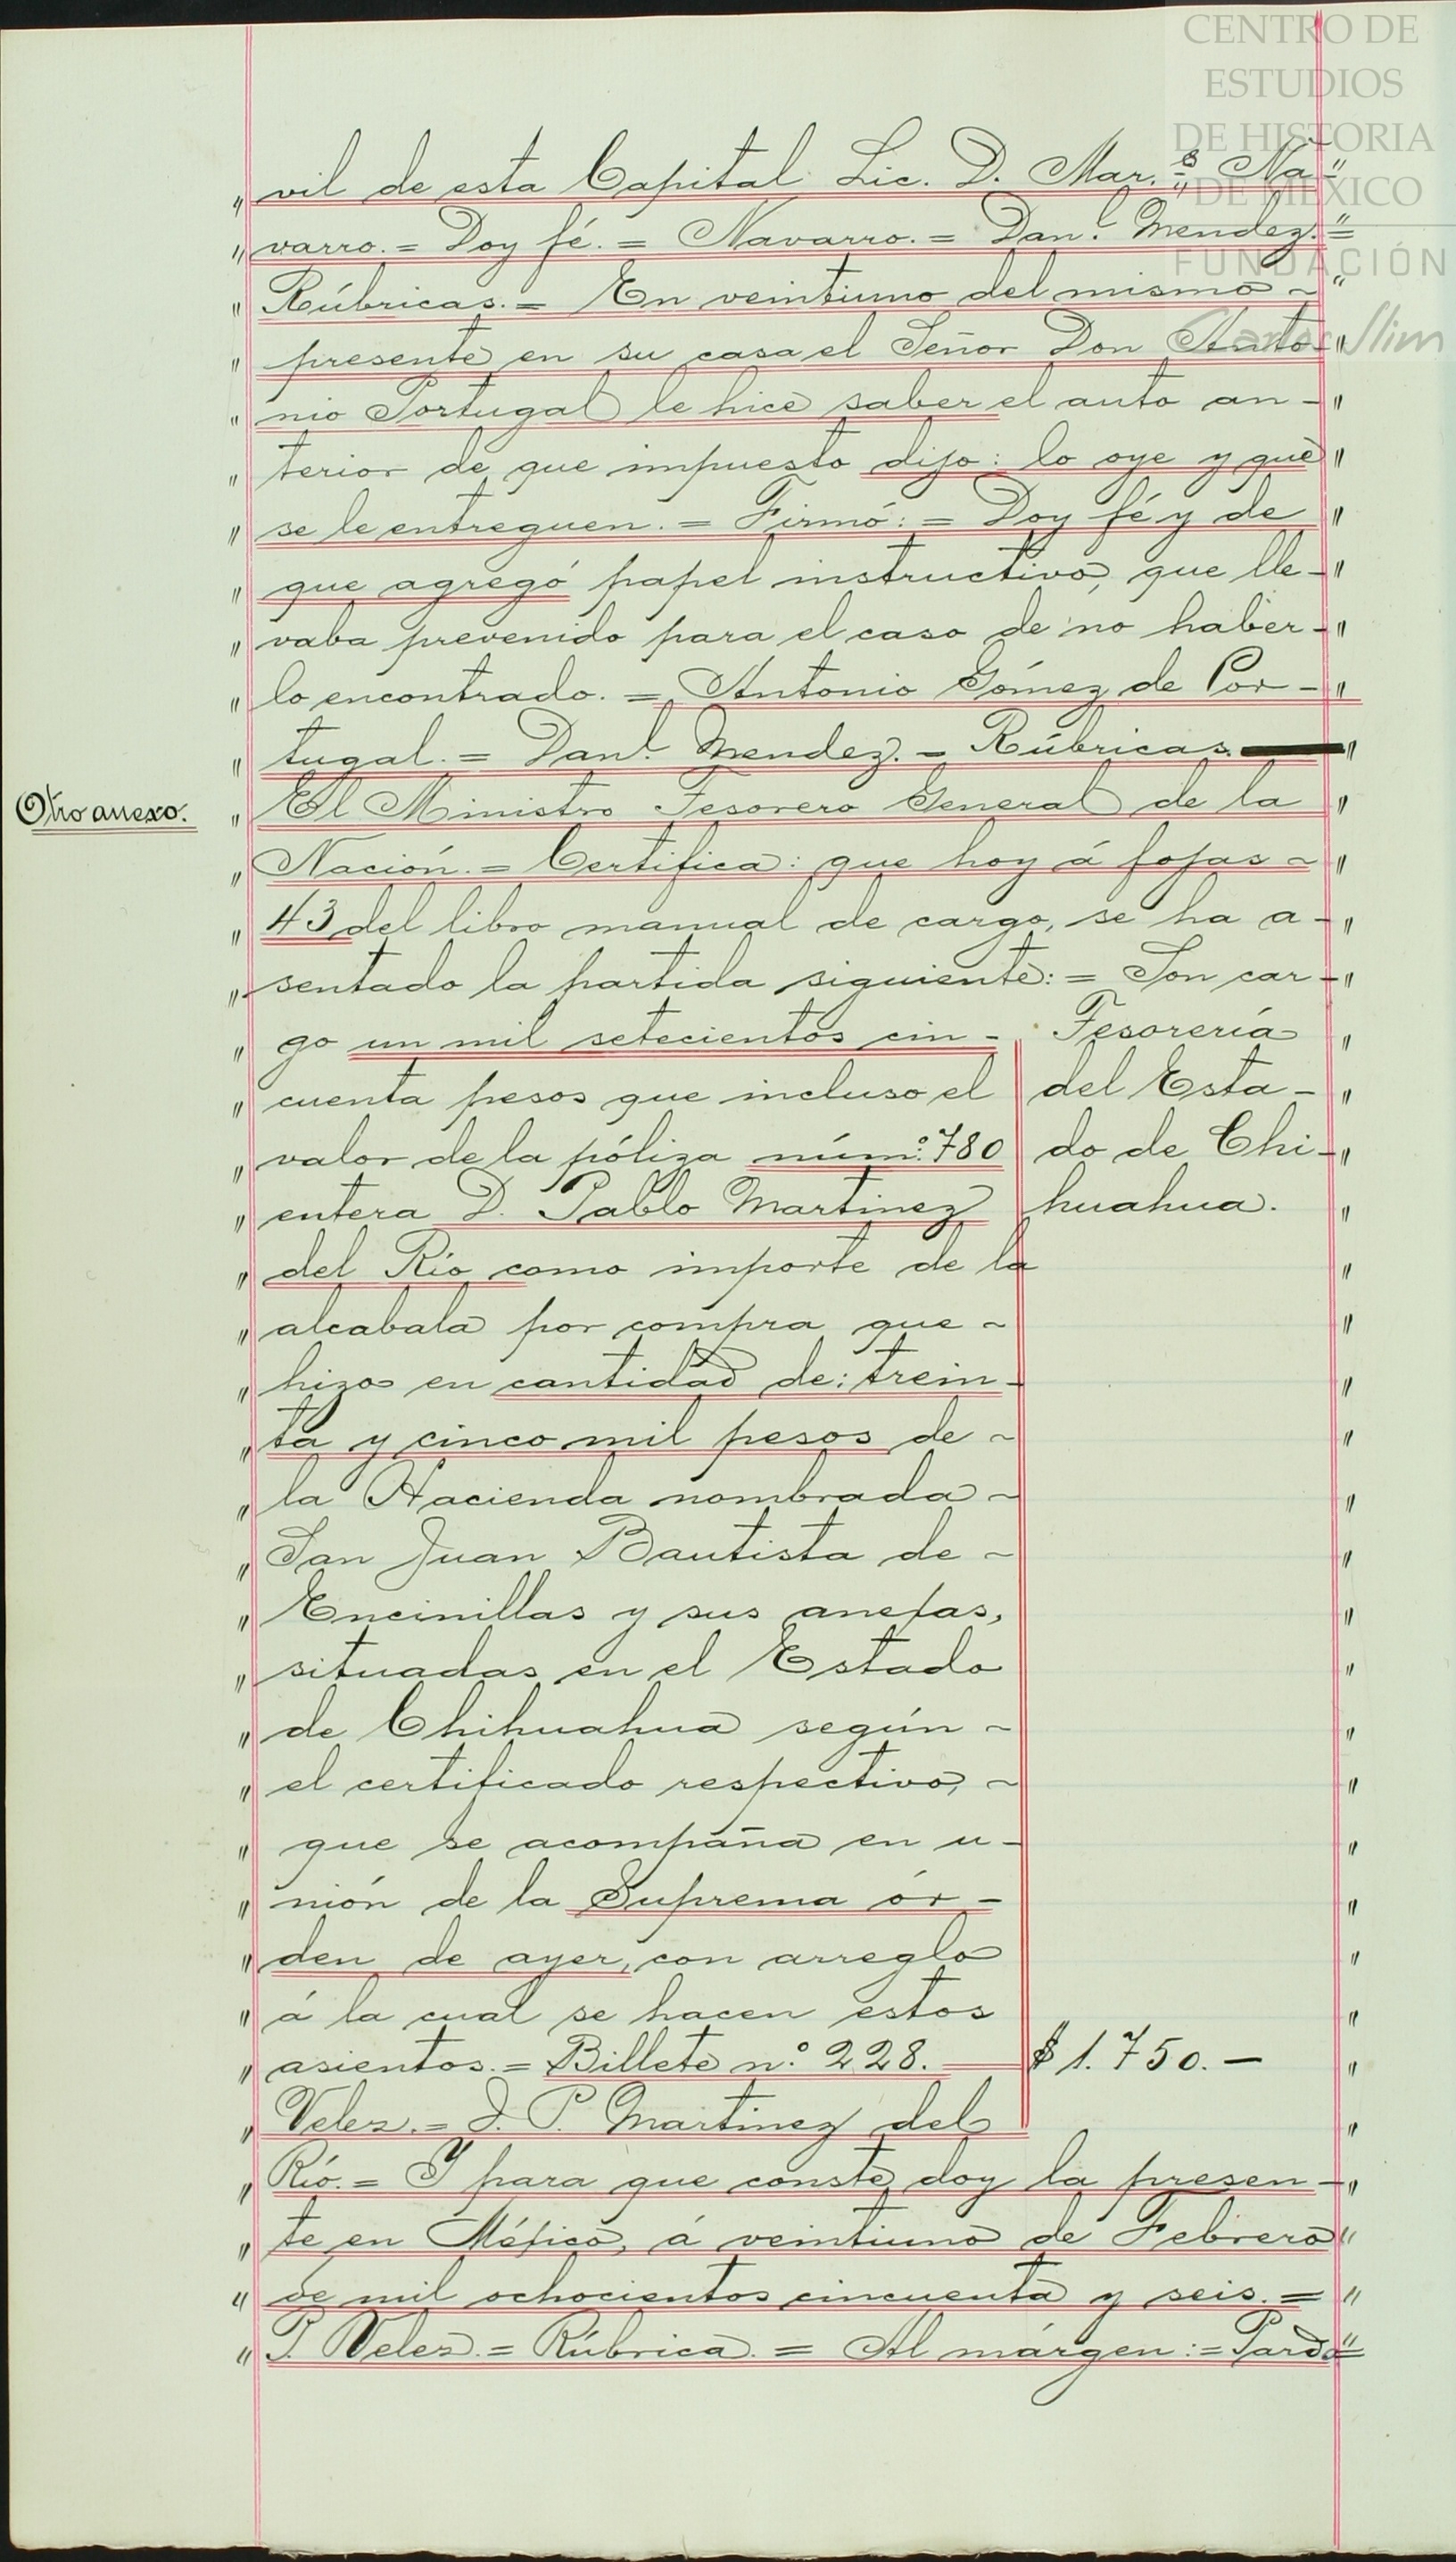 CENTRO DE
ESTUDIOS
DE HISTORIA
DE MÉXICO
FUNDACIÓN
Carlos Slim
" vil de esta Capital Lic. D. Mar.º Na- "
" varro. = Doy fé. = Navarro. = Dan.l Mendez. = "
" Rúbricas. = En veintiuno del mismo ~ "
" presente en su casa el Señor Don Anto- "
" nio Portugal le hice saber el auto an- "
" terior de que impuesto dijo: lo oye y que "
" se le entreguen. = Firmó: = Doy fé y de "
" que agregó papel instructivo, que lle- "
" vaba prevenido para el caso de no haber- "
" lo encontrado. = Antonio Gómez de Por- "
" tugal. = Danl. Mendez. = Rúbricas. — "
Otro anexo.
" El Ministro Tesorero General de la "
" Nación. = Certifica: que hoy á fojas ~ "
" 43 del libro manual de cargo, se ha a- "
" sentado la partida siguiente: = Son car- "
" go un mil setecientos cin- Tesorería "
" cuenta pesos que incluso el del Esta- "
" valor de la póliza núm.º 780 do de Chi- "
" entera D. Pablo Martinez huahua. "
" del Río como importe de la "
" alcabala por compra que ~ "
" hizo en cantidad de: trein- "
" ta y cinco mil pesos de ~ "
" la Hacienda nombrada ~ "
" San Juan Bautista de ~ "
" Encinillas y sus anexas, "
" situadas en el Estado "
" de Chihuahua según ~ "
" el certificado respectivo, ~ "
" que se acompaña en u- "
" nión de la Suprema ór- "
" den de ayer, con arreglo "
" á la cual se hacen estos "
" asientos. = Billete n.º 228. $ 1.750. — "
" Velez. = J. P. Martinez del "
" Río. = Y para que conste doy la presen- "
" te en México, á veintiuno de Febrero "
" de mil ochocientos cincuenta y seis. = "
" P. Velez. = Rúbrica. = Al márgen: = Pardo "